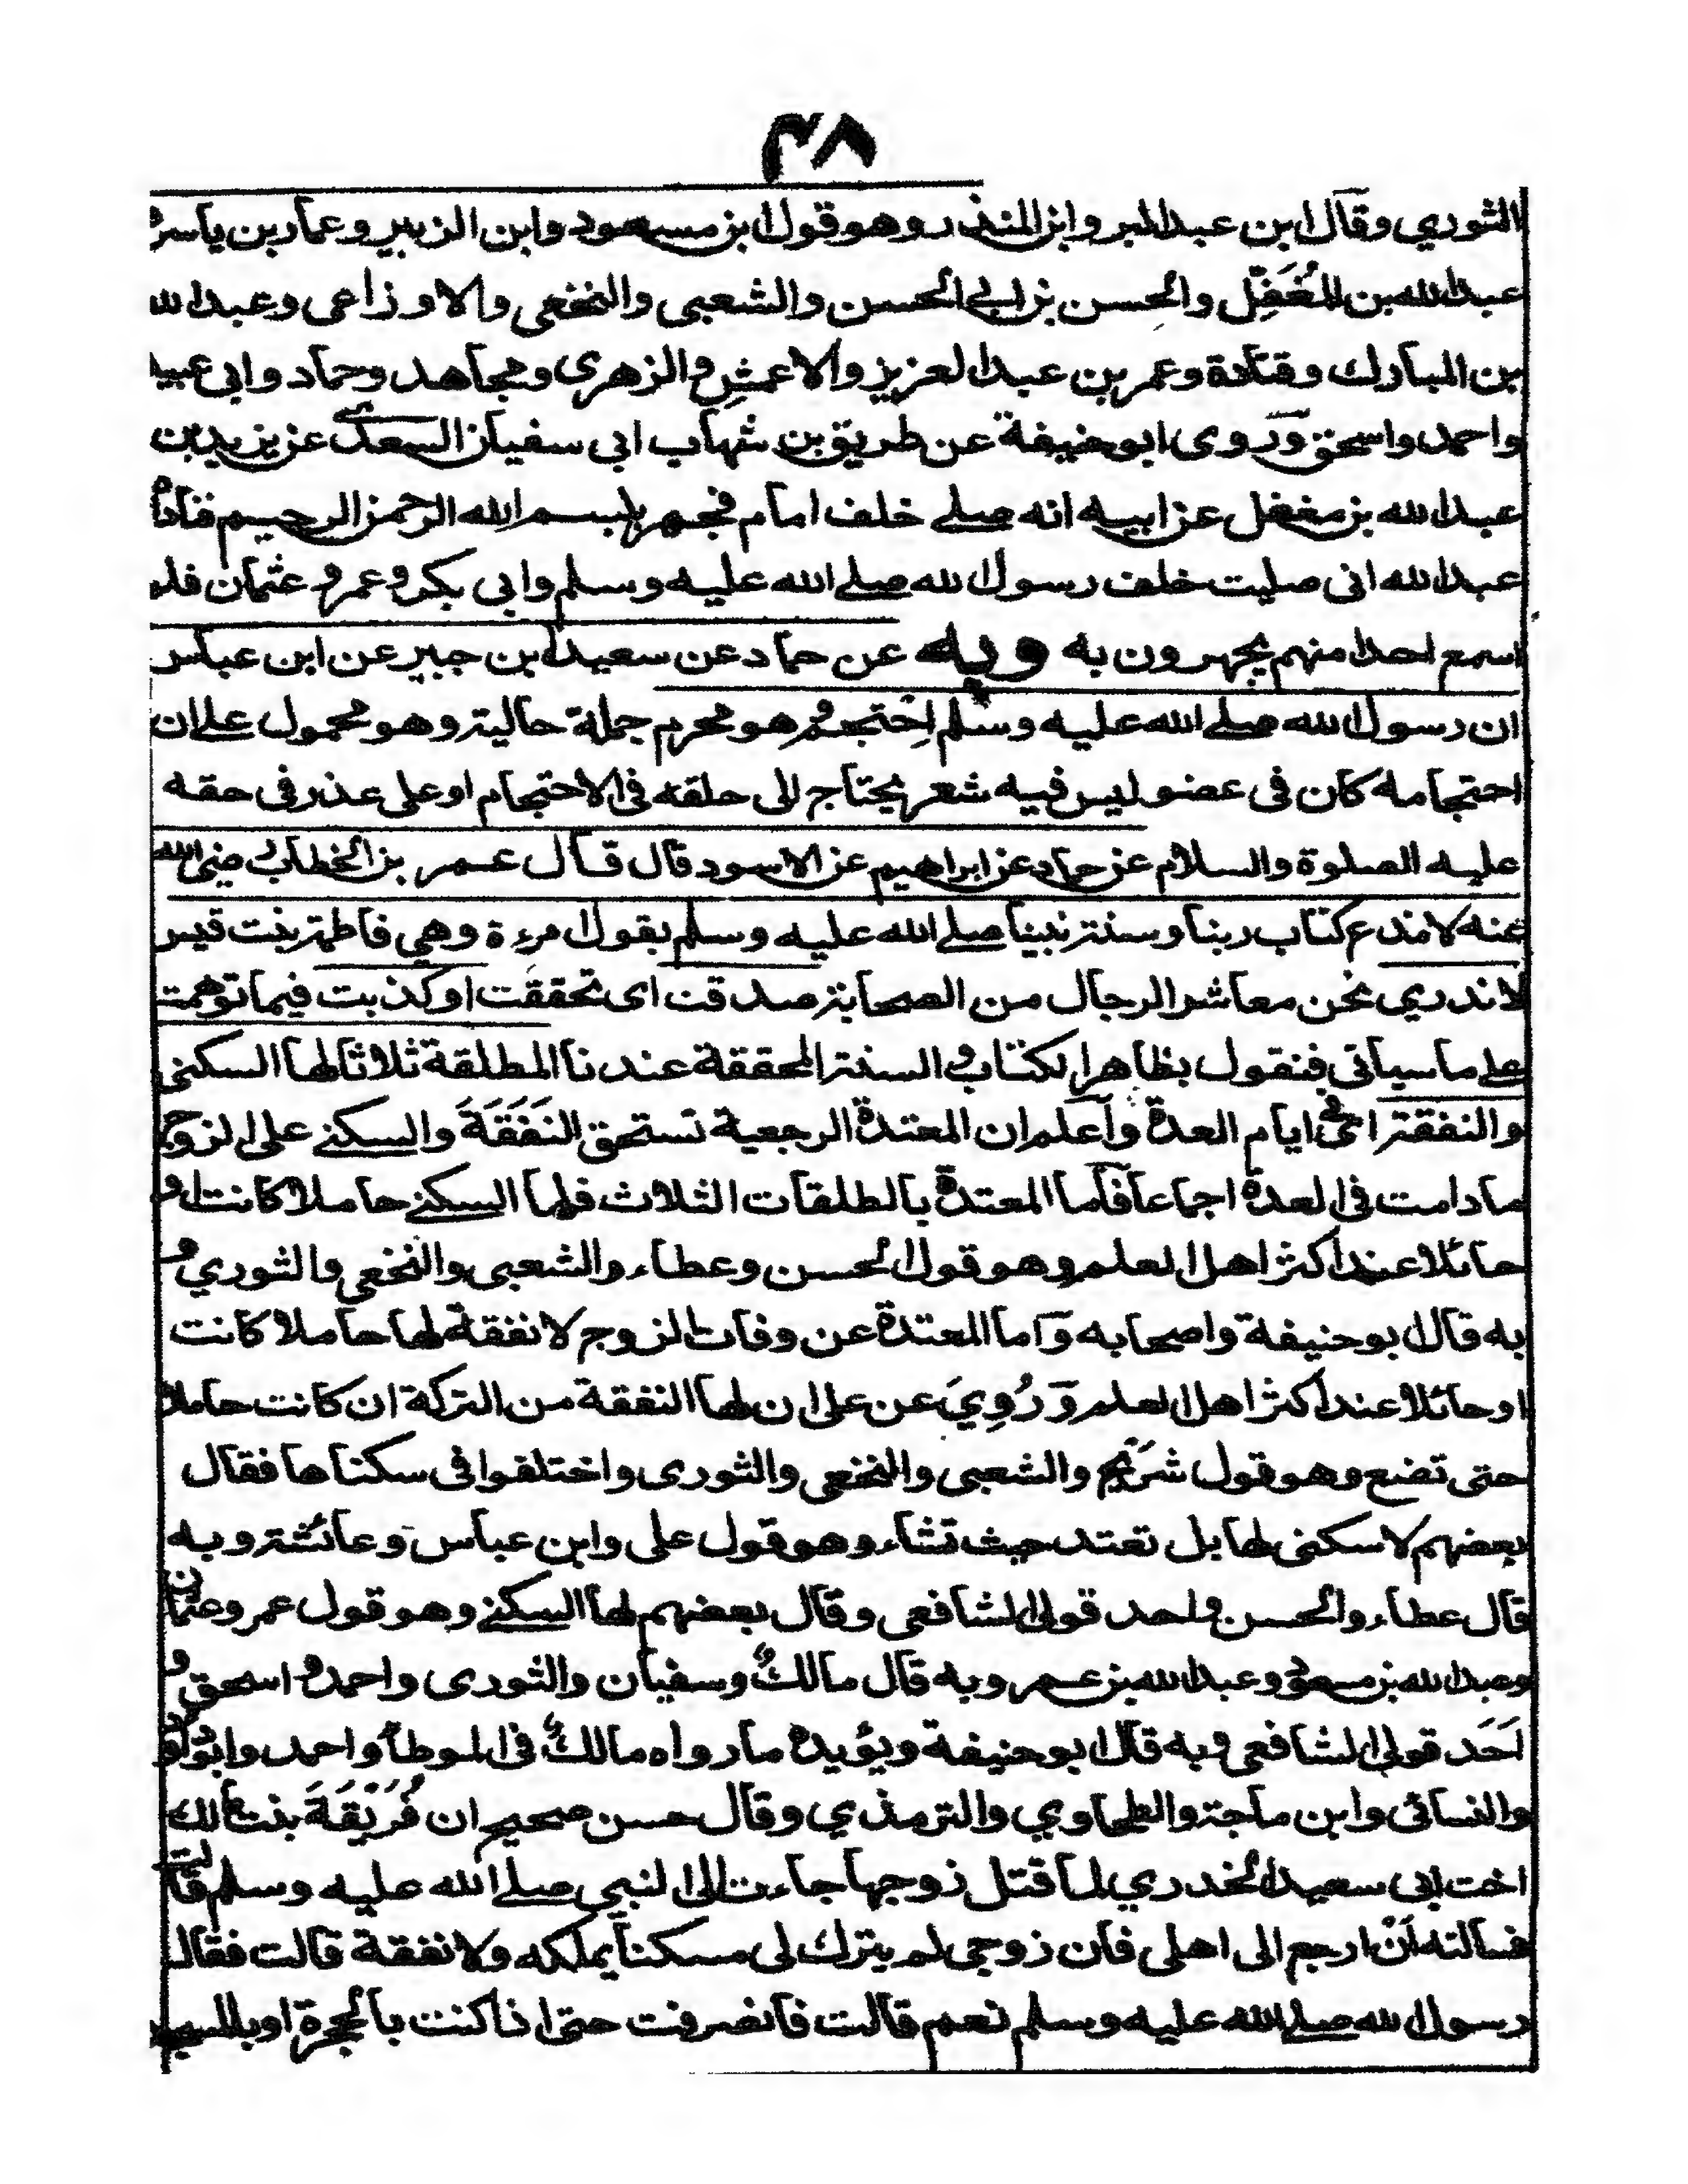 ٣٨
الثوري وقال ابن عبد البر وابن المنذر وهو قول ابن مسعود وابن الزبير وعمار بن ياسر و
عبد الله بن المُغَفِّل والحسن بن ابي الحسن والشعبي والنخعي والاوزاعي وعبد الله
بن المبارك وقتادة وعمر بن عبد العزيز والاعمش والزهرى ومجاهد وحماد وابي عبيد
واحمد واسحق وروى ابو حنيفة عن طريق بن شهاب ابى سفيان السعدى عن يزيد بن
عبد الله بن مغفل عن ابيه انه صلى خلف امام فجهر ببسم الله الرحمن الرحيم فناداه
عبد الله انى صليت خلف رسول الله صلى الله عليه وسلم وابى بكر وعمر وعثمان فلم
اسمع احدا منهم يجهرون به وبه عن حماد عن سعيد ابن جبير عن ابن عباس
ان رسول الله صلى الله عليه وسلم اِحتجم وهو محرم جملة حالية وهو محمول على ان
احتجامه كان فى عضو ليس فيه شعر يحتاج الى حلقه فى الاحتجام او على عذر فى حقه
عليه الصلوة والسلام عن حماد عن ابراهيم عن الاسود قال قال عمر بن الخطاب رضى الله
عنه لا ندع كتاب ربنا وسنة نبينا صلى الله عليه وسلم بقول امرءة وهي فاطمة بنت قيس
لا ندري نحن معاشر الرجال من الصحابة صدقت اى تحققت او كذبت فيما توهمت
على ما سياتى فنقول بظاهر الكتاب و السنة المحققة عندنا المطلقة ثلاثا لها السكنى
والنفقة اى فى ايام العدة وآعلم ان المعتدة الرجعية تستحق النَفَقَةَ والسكنى على الزوج
ما دامت فى العدة اجماعا فآما المعتدة بالطلقات الثلاث فلها السكنى حاملا كانت او
حائلا عند اكثر اهل العلم وهو قول الحسن وعطاء والشعبى والنخعي والثوري و
به قال ابو حنيفة واصحابه وآما المعتدة عن وفات الزوج لا نفقة لها حاملا كانت
او حائلا عند اكثر اهل العلم وَرُوِيَ عن على ان لها النفقة من التركة ان كانت حاملا
حتى تضع وهو قول شريح والشعبى والنخعى والثورى واختلفوا فى سكناها فقال
بعضهم لا سكنى لها بل تعتد حيث تشاء وهو قول على وابن عباس وعائشة وبه
قال عطاء والحسن و احد قولى الشافعى وقال بعضهم لها السكنى وهو قول عمر وعثمان
وعبد الله بن مسعود وعبد الله بن عمر وبه قال مالك وسفيان والثورى واحمد و اسحق و
اَحَد قولى الشافعى وبه قال ابو حنيفة ويؤيده ما رواه مالك فى الموطأ واحمد وابو داود
والنسائى وابن ماجة والطحاوي والترمذي وقال حسن صحيح ان فُرَيْقَةَ بنت مالك
اخت ابى سعيد الخدري لما قتل زوجها جاءت الى النبى صلى الله عليه وسلم قالت
فسالته اَنْ ارجع الى اهلى فان زوجى لم يترك لى مسكنا يملكه ولا نفقة قالت فقال
رسول الله صلى الله عليه وسلم نعم قالت فانصرفت حتى اذا كنت بالحجرة او بالمسجد